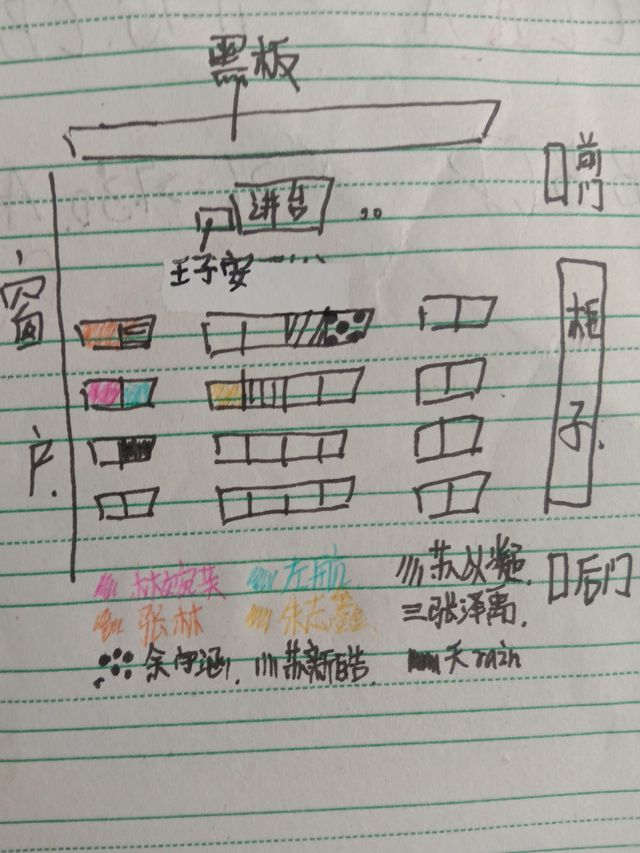 黑板
前门
讲台
王子安
窗户
柜子
林婉 左航 苏以
后门
张林 朱志 张泽禹
余宇涵 苏新皓 天